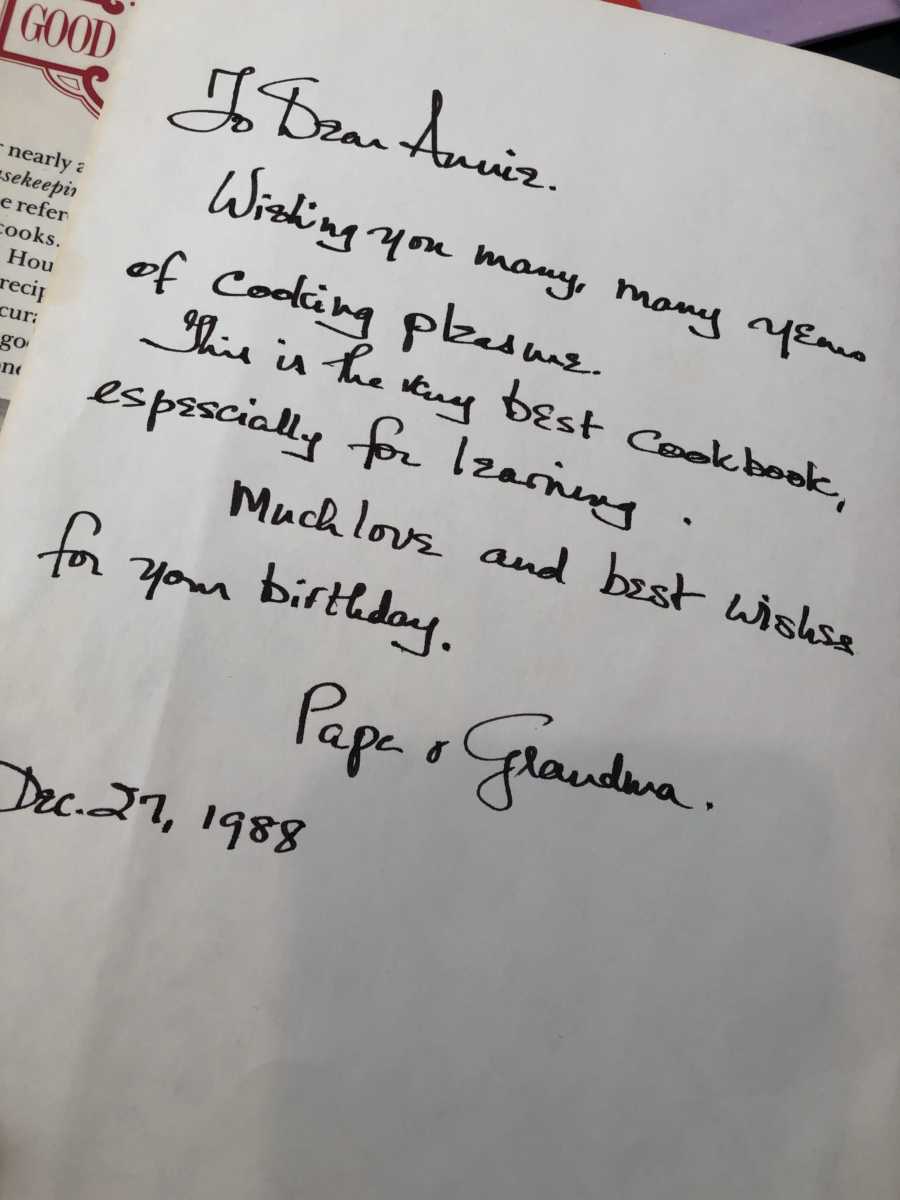 GOOD
nearly a
usekeepin
e refer
cooks.
Hou
recip
cura
go
one
To Dear Annie.
Wishing you many, many years
of cooking pleasure.
This is the very best cookbook,
espescially for learning.
Much love and best wishes
for your birthday.
Papa & Grandma.
Dec. 27, 1988